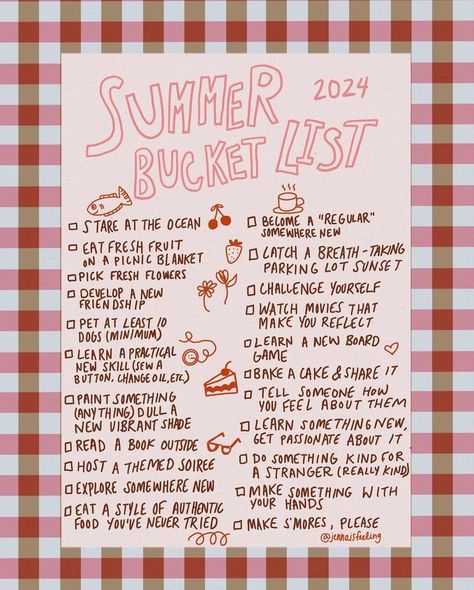 SUMMER 2024
BUCKET LIST
STARE AT THE OCEAN
EAT FRESH FRUIT
ON A PICNIC BLANKET
PICK FRESH FLOWERS
DEVELOP A NEW
FRIENDSHIP
PET AT LEAST 10
DOGS (MINIMUM)
LEARN A PRACTICAL
NEW SKILL (SEW A
BUTTON, CHANGE OIL, ETC)
PAINT SOMETHING
(ANYTHING) DULL A
NEW VIBRANT SHADE
READ A BOOK OUTSIDE
HOST A THEMED SOIREE
EXPLORE SOMEWHERE NEW
EAT A STYLE OF AUTHENTIC
FOOD YOU'VE NEVER TRIED
BECOME A "REGULAR"
SOMEWHERE NEW
CATCH A BREATH-TAKING
PARKING LOT SUNSET
CHALLENGE YOURSELF
WATCH MOVIES THAT
MAKE YOU REFLECT
LEARN A NEW BOARD
GAME
BAKE A CAKE & SHARE IT
TELL SOMEONE HOW
YOU FEEL ABOUT THEM
LEARN SOMETHING NEW,
GET PASSIONATE ABOUT IT
DO SOMETHING KIND FOR
A STRANGER (REALLY KIND)
MAKE SOMETHING WITH
YOUR HANDS
MAKE S'MORES, PLEASE
@jennaisfeeling